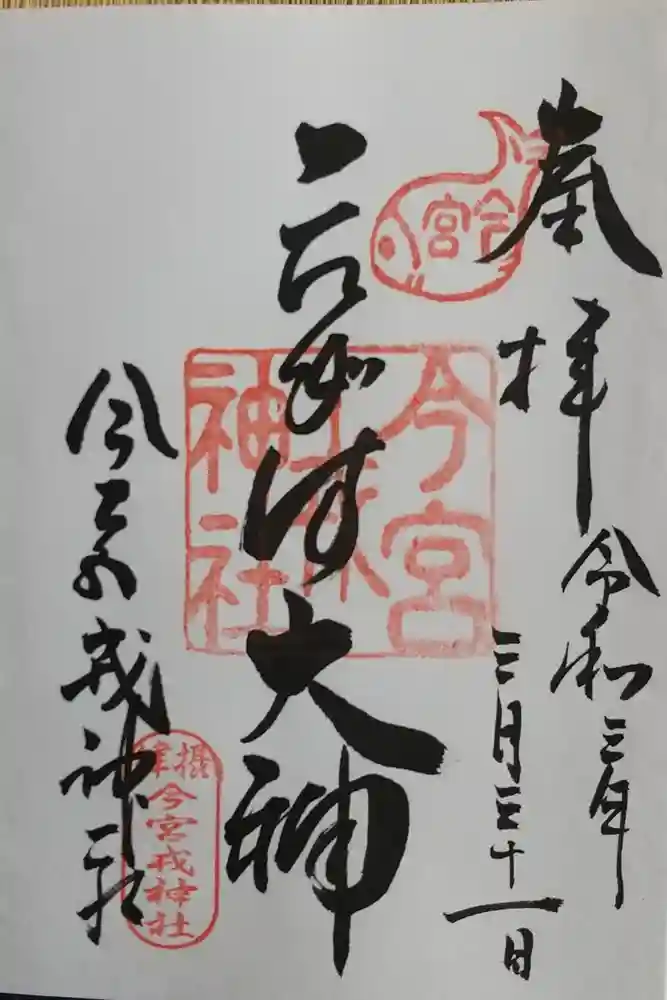 奉拝
令和三年
三月三十一日
今宮
大神
今宮戎神社
今宮戎神社
摂津
今宮戎神社